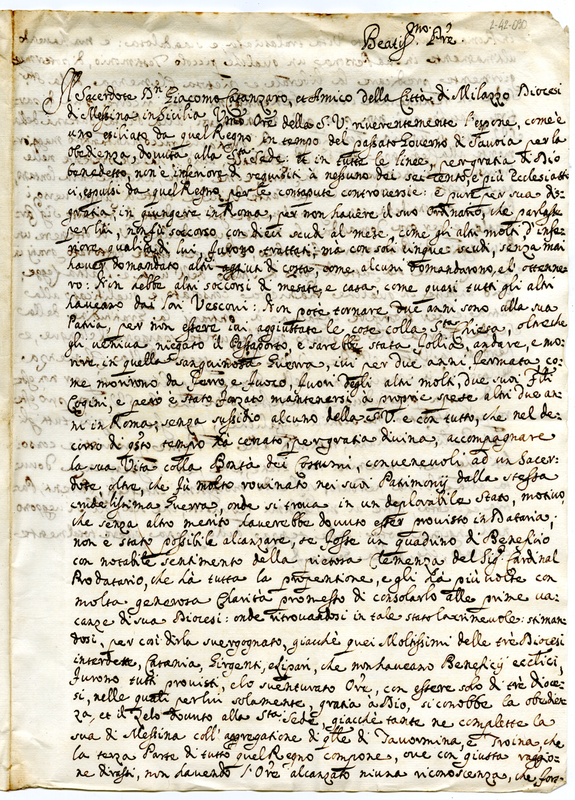 2-42-030
Beatiss.mo P.re
Il Sacerdote D.n Giacomo Catanzaro, et Amico della Città di Milazzo Diocesi
di Messina in Sicilia Um.mo Ore della S.V. riverentemente l'espone, com'è
uno esiliato da quel Regno in tempo del passato Governo di Savoia per la
obedienza, dovuta alla S.ta Sede: in tutte le linee, per gratia di Dio
benedetto, non è inferiore di requisiti à nessuno dei sei cento, e più Ecclesiasti
ci, espulsi da quel Regno per le consapute controversie: è pure per sua di-
sgratia, in giungere in Roma, per non havere il suo Ordinario, che parlasse
per lui, non fù soccorso con dieci scudi al mese, come gli altri molti d'infe-
riore qualità di lui, furono trattati; mà con soli cinque scudi, senza mai
haver domandato altri aggiuti di costa, come alcuni domandarono, e l'ottenne-
ro: Non hebbe altri soccorsi di mesate, e casa, come quasi tutti gli altri
havevano dai loro Vescovi: Non pote tornare due anni sono alla sua
Patria, per non essere ivi aggiustate le cose colla S.ta Chiesa, oltreche
gli veniva niegato il Passaporto, e sarebbe stata follia, andare, e mo-
rire, in quella sanguinosa Guerra, ivi per due anni fermata, co-
me morirono da Ferro, e fuoco, fuori degli altri molti, due suoi F.lli
Cogini, e però è stato forzato mantenersi à proprie spese altri due an-
ni in Roma, senza sussidio alcuno della S.V. e con tutto, che nel de-
corso di q.sto tempo hà cercato, per gratia divina, accompagnare
la sua Vita colla Bontà dei Costumi, convenevoli ad un Sacer-
dote oltre, che fù molto rovinato nei suoi Patimonij dalla stessa
crudelissima Guerra, onde si trova in un deplorabile Stato, motivo
che senza altro merito haverebbe dovuto esser provisto in Dataria;
non è stato possibile alcanzare, se fosse un quadrino di Beneficio
con notabile sentimento della pietosa Clemenza del Sig.r Cardinal
Prodatario, che hà tutta la propentione, e gli hà più volte con
molta generosa Charità promesso di consolarlo alle prime va-
canze di sua Diocesi: onde ritrovandosi in tale stato lacrimevole: stiman-
dosi, per così dirla svergognato, giacchè quei Moltissimi delle trè Diocesi
interdette, Catania, Girgenti, e Lipari, che non haveano Beneficij eccl.ici,
furono tutti provisti, e lo sventurato Ore, con essere solo di trè dioce-
si, nelle quali per lui solamente, gratia à Dio, si conobbe la obedien-
za, et il zelo dovuto alla S.ta Sede, giacchè tante ne complette la
sua di Messina coll'aggregatione di q.lle di Tavormina, e Troina, che
la terza Parte di tutto quel Regno compone, ove con giusta raggio-
ne diressi, non havendo l'Ore alcanzato niuna riconoscenza, che fors-